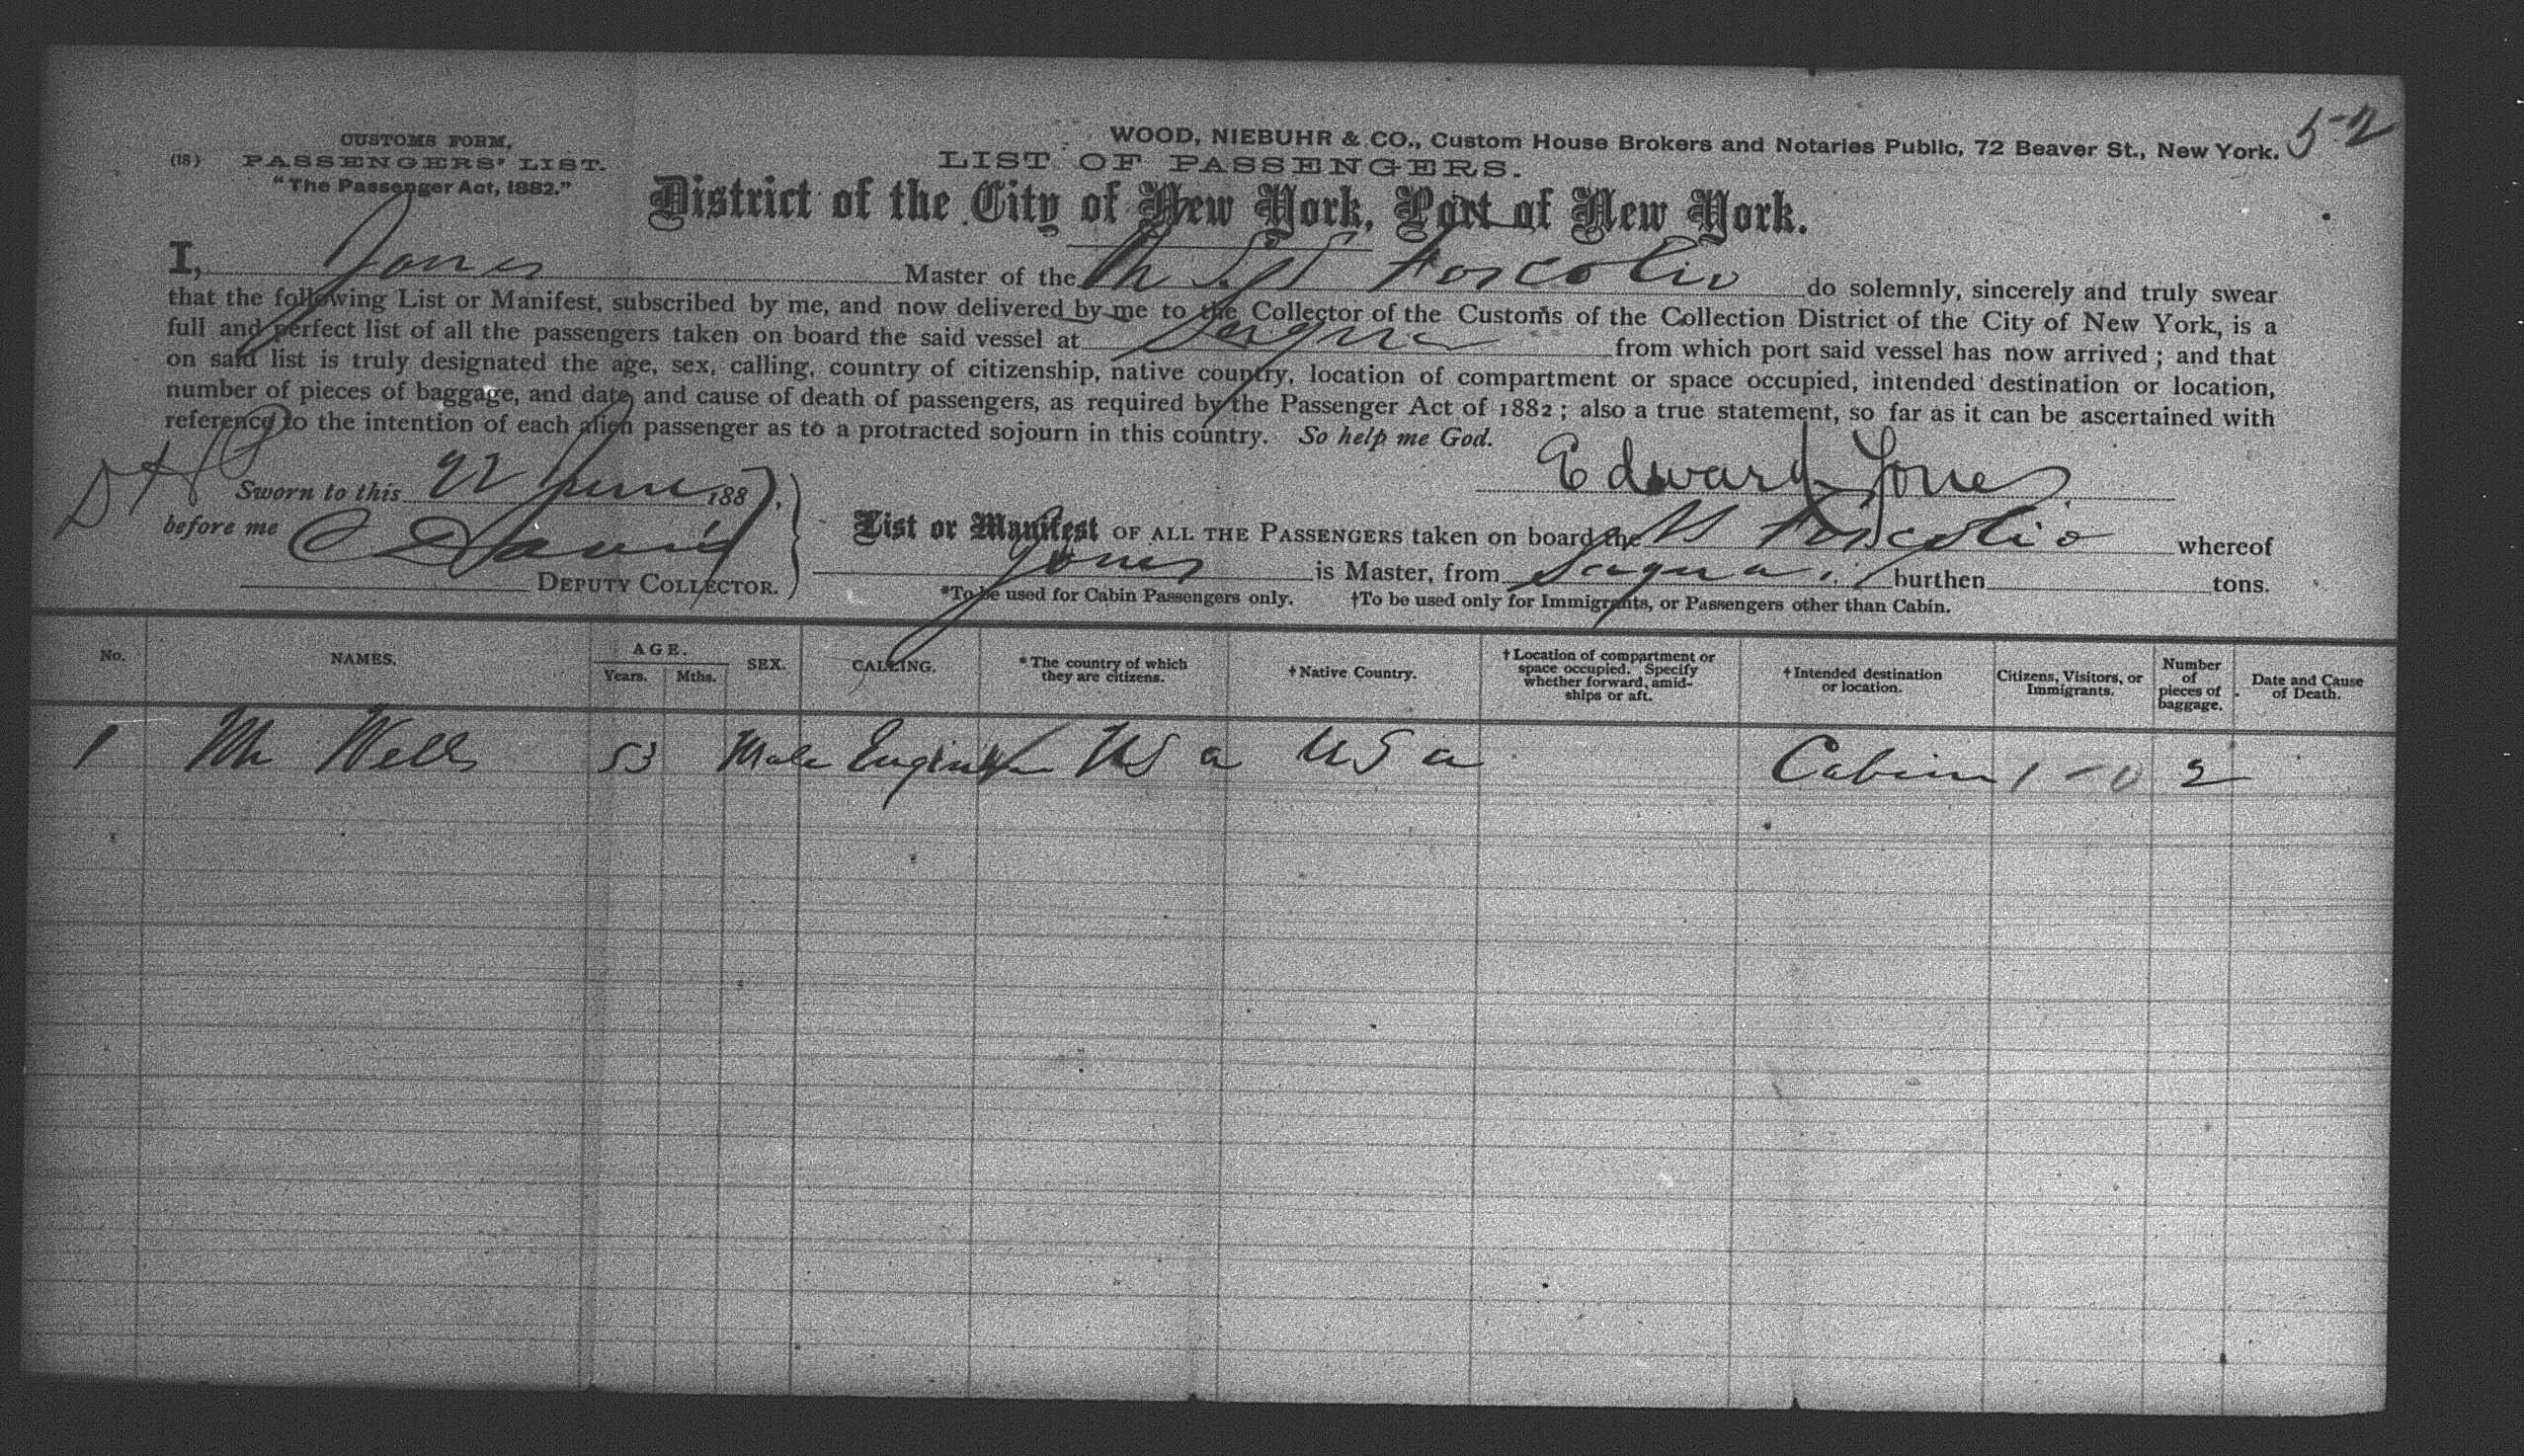 5-2
CUSTOMS FORM,
(18) PASSENGERS' LIST.
"The Passenger Act, 1882."
WOOD, NIEBUHR & CO., Custom House Brokers and Notaries Public, 72 Beaver St., New York.
LIST OF PASSENGERS.
District of the City of New York, Port of New York.
I, Jones Master of the Foscolio do solemnly, sincerely and truly swear
that the following List or Manifest, subscribed by me, and now delivered by me to the Collector of the Customs of the Collection District of the City of New York, is a
full and perfect list of all the passengers taken on board the said vessel at Sagua from which port said vessel has now arrived; and that
on said list is truly designated the age, sex, calling, country of citizenship, native country, location of compartment or space occupied, intended destination or location,
number of pieces of baggage, and date, and cause of death of passengers, as required by the Passenger Act of 1882; also a true statement, so far as it can be ascertained with
reference to the intention of each alien passenger as to a protracted sojourn in this country. So help me God.
Edward Jones
Sworn to this 22 June 1887,
before me C Davis
DEPUTY COLLECTOR.
List or Manifest OF ALL THE PASSENGERS taken on board the Foscolio whereof
Jones is Master, from Sagua burthen tons.
*To be used for Cabin Passengers only. †To be used only for Immigrants, or Passengers other than Cabin.
No. NAMES. AGE. Years. Mths. SEX. CALLING. *The country of which they are citizens. †Native Country. †Location of compartment or space occupied. Specify whether forward, amidships or aft. †Intended destination or location. Citizens, Visitors, or Immigrants. Number of pieces of baggage. Date and Cause of Death.
1 Mr Wells 53 Male Engineer USa USa Cabin 1-0 2